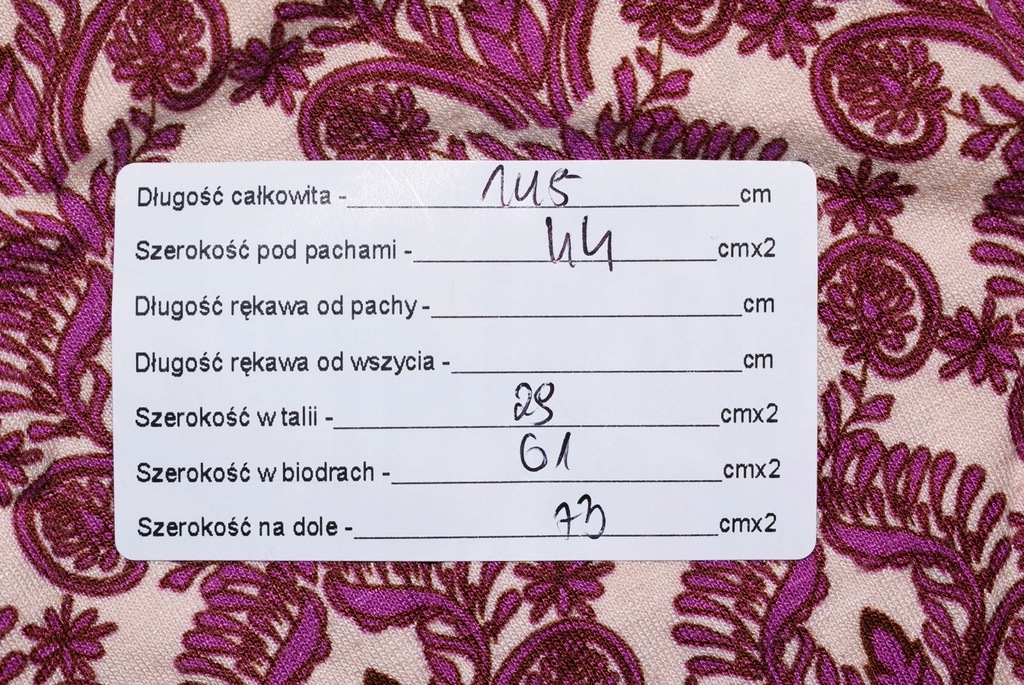 Długość całkowita - 145 cm
Szerokość pod pachami - 44 cmx2
Długość rękawa od pachy - cm
Długość rękawa od wszycia - cm
Szerokość w talii - 29 cmx2
Szerokość w biodrach - 61 cmx2
Szerokość na dole - 73 cmx2